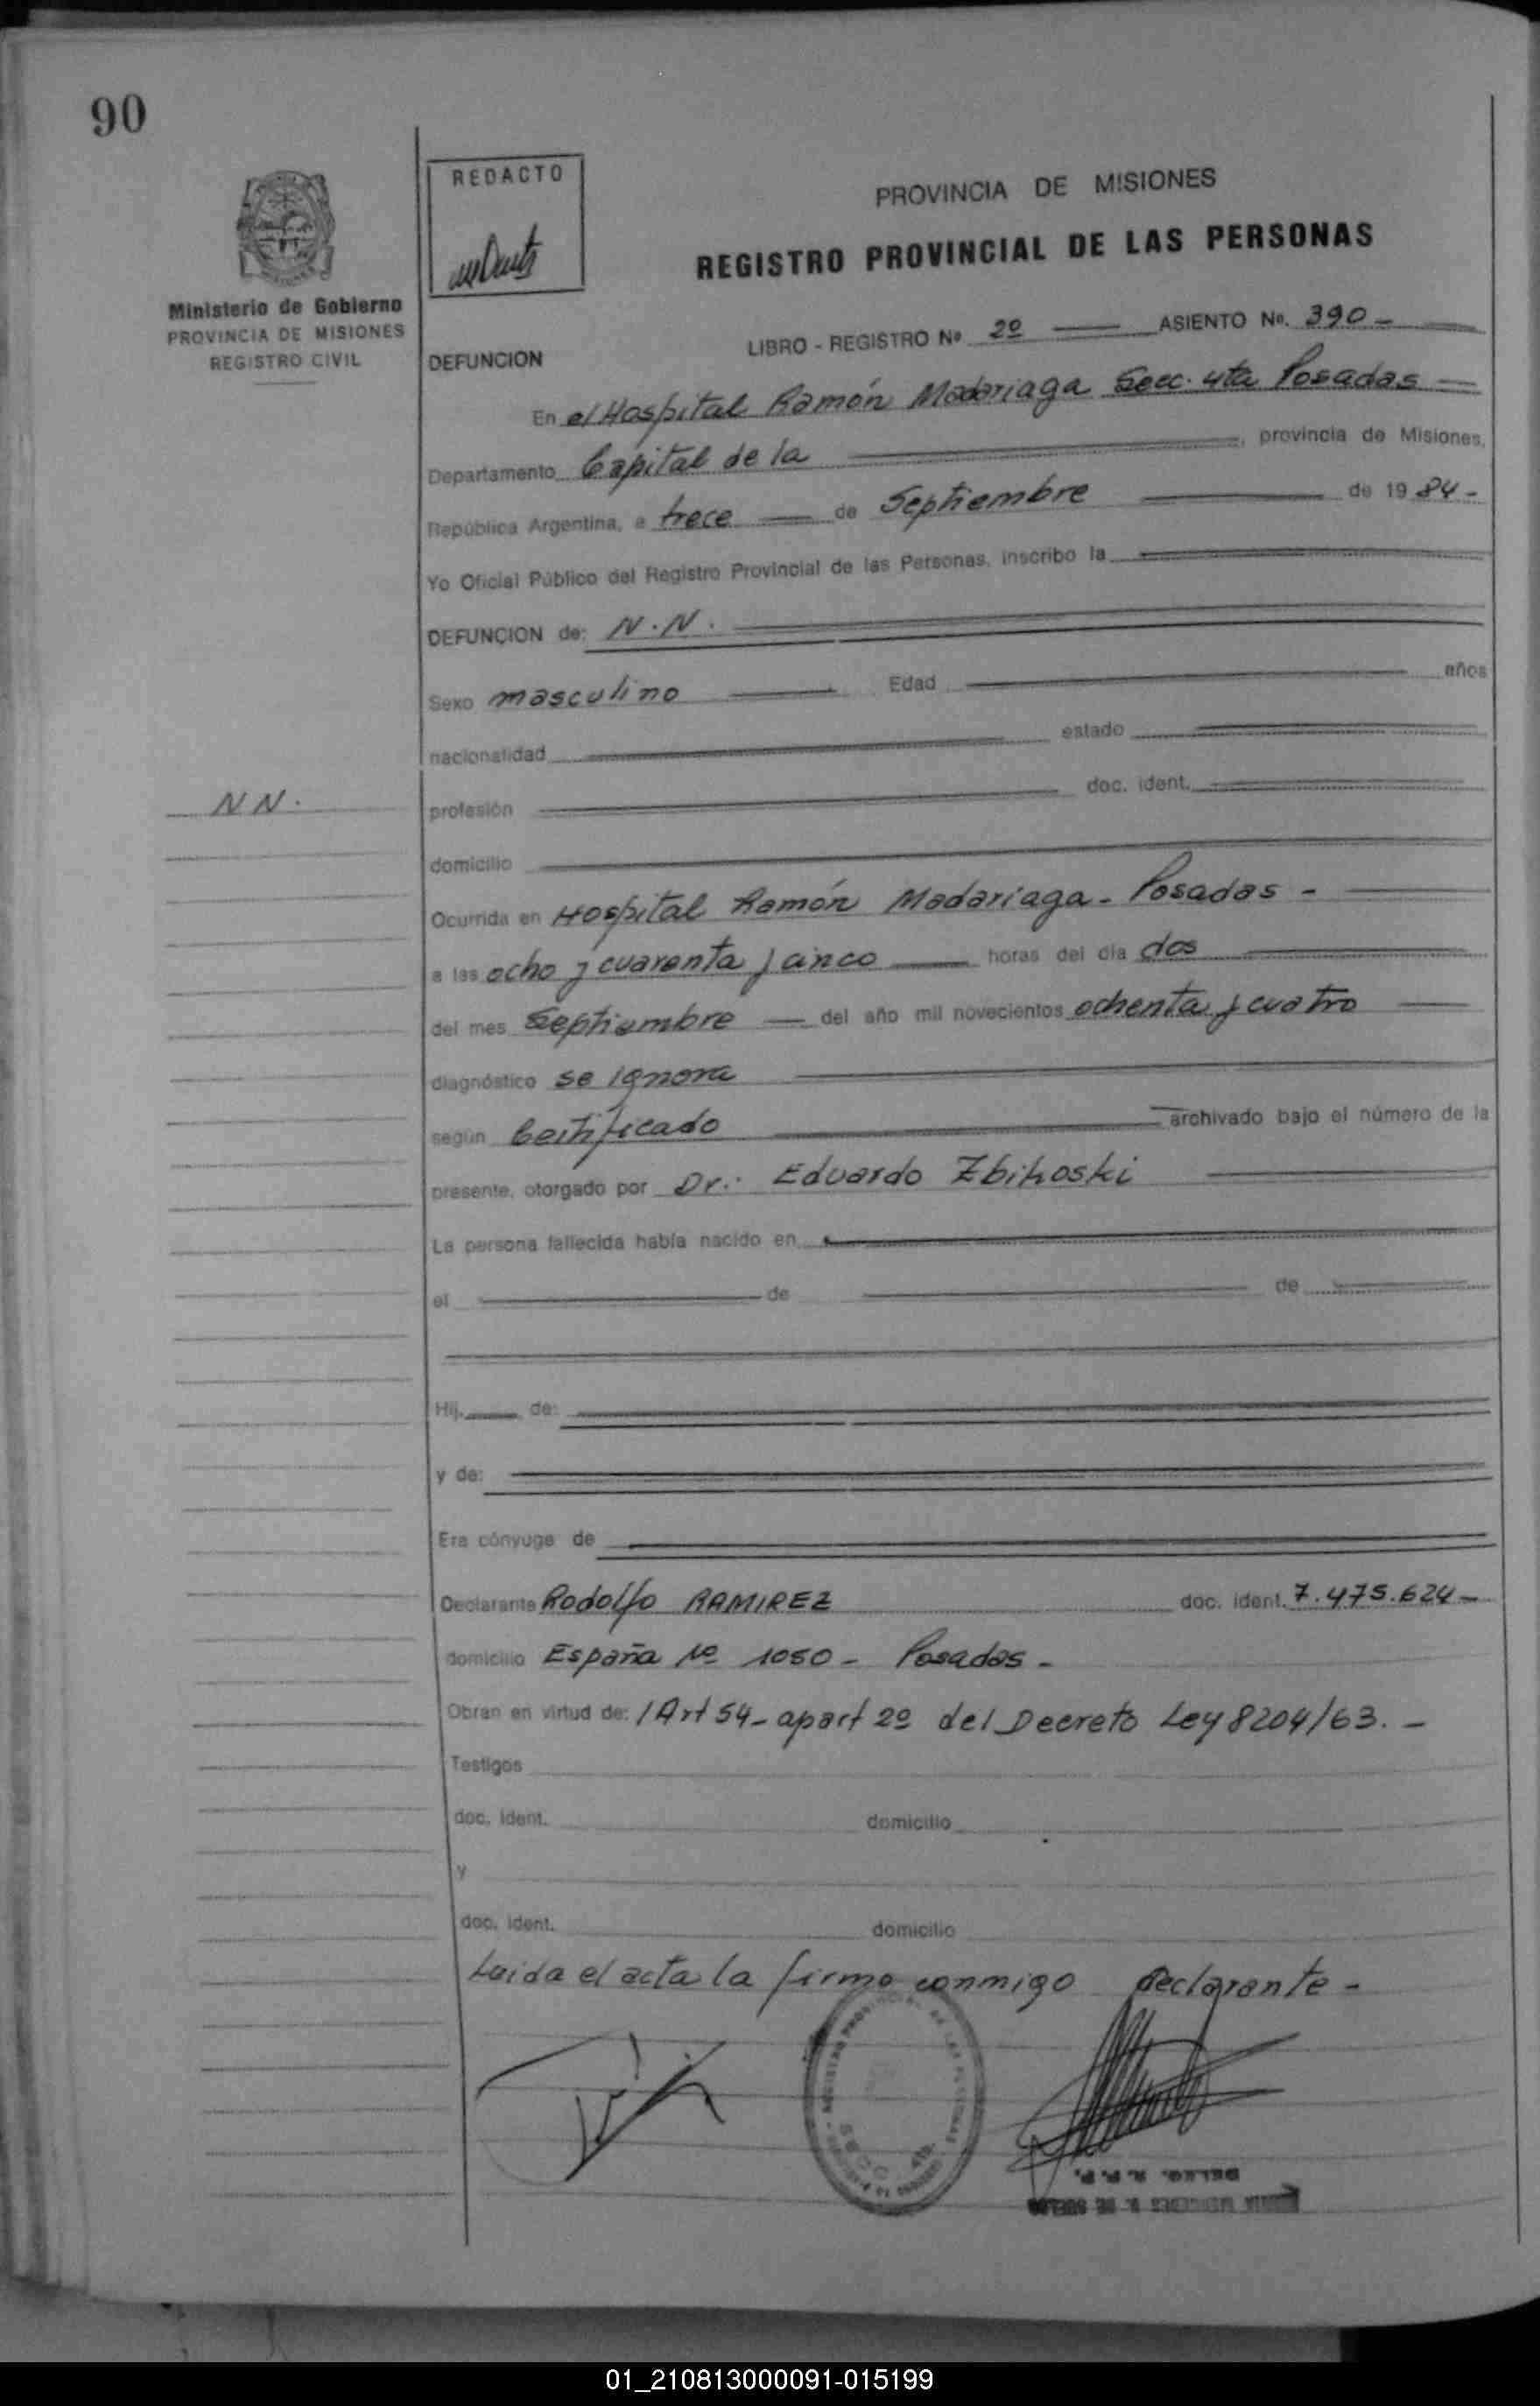 90
REDACTO
PROVINCIA DE MISIONES
REGISTRO PROVINCIAL DE LAS PERSONAS
Ministerio de Gobierno
PROVINCIA DE MISIONES
REGISTRO CIVIL
LIBRO - REGISTRO Nº 2º ASIENTO No. 390 -
DEFUNCION
En el Hospital Ramón Madariaga Secc. 4ta Posadas
Departamento Capital de la , provincia de Misiones,
República Argentina, a trece de Septiembre de 1984 -
Yo Oficial Público del Registro Provincial de las Personas, inscribo la
DEFUNCION de: N.N.
Sexo masculino Edad años
nacionalidad estado
N N.
profesión doc. ident.
domicilio
Ocurrida en Hospital Ramón Madariaga - Posadas -
a las ocho y cuarenta y cinco horas del día dos
del mes Septiembre del año mil novecientos ochenta y cuatro
diagnóstico se ignora
según Certificado archivado bajo el número de la
presente, otorgado por Dr.: Eduardo Zbihoski
La persona fallecida había nacido en
el de de
Hij de:
y de:
Era cónyuge de
Declarante Rodolfo RAMIREZ doc. ident. 7.475.624 -
domicilio España Nº 1050 - Posadas -
Obran en virtud de: / Art 54 - apart 2º del Decreto Ley 8204/63. -
Testigos
doc. ident. domicilio
y
doc. ident. domicilio
Leida el acta la firma conmigo declarante -
SECC 4ta.
DELEG. R. P. P.
01_210813000091-015199